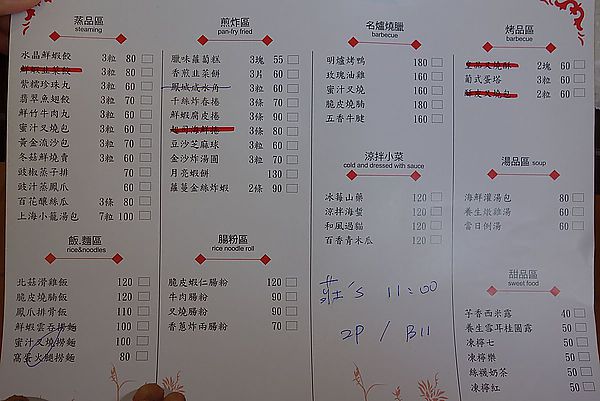 蒸品區
steaming
水晶鮮蝦餃 3粒 80
鮮蝦韭菜餃 3粒 80
紫糯珍珠丸 3粒 60
翡翠魚翅餃 3粒 70
鮮竹牛肉丸 3粒 60
蜜汁叉燒包 3粒 60
黃金流沙包 3粒 70
冬菇鮮燒賣 3粒 60
豉椒蒸子排 70
豉汁蒸鳳爪 60
百花釀絲瓜 3條 80
上海小籠湯包 7粒 100
飯.麵區
rice&noodles
北菇滑雞飯 120
脆皮燒腩飯 120
鳳爪排骨飯 110
鮮蝦雲吞撈麵 100
蜜汁叉燒撈麵 100
窩蛋火腿撈麵 80
煎炸區
pan-fry fried
臘味蘿蔔糕 3塊 55
香煎韭菜餅 3片 60
鳳城咸水角 3粒 60
千絲炸春捲 3條 70
鮮蝦腐皮捲 3條 90
3條 80
豆沙芝麻球 3粒 60
金沙炸湯圓 3粒 70
月亮蝦餅 130
蘿蔓金絲炸蝦 2條 90
腸粉區
rice noodle roll
脆皮蝦仁腸粉 120
牛肉腸粉 90
叉燒腸粉 90
香蔥炸兩腸粉 70
名爐燒臘
barbecue
明爐烤鴨 180
玫瑰油雞 160
蜜汁叉燒 160
脆皮燒腩 160
五香牛腱 160
涼拌小菜
cold and dressed with sauce
冰莓山藥 120
涼拌海蜇 120
和風過貓 120
百香青木瓜 120
莊's 11:00
2P / B11
烤品區
barbecue
2塊 60
葡式蛋塔 3粒 60
2粒 60
湯品區 soup
海鮮灌湯包 80
養生燉雞湯 60
當日例湯 60
甜品區
sweet food
芋香西米露 40
養生雪耳桂圓露 50
凍檸七 50
凍檸樂 50
絲襪奶茶 50
凍檸紅 50